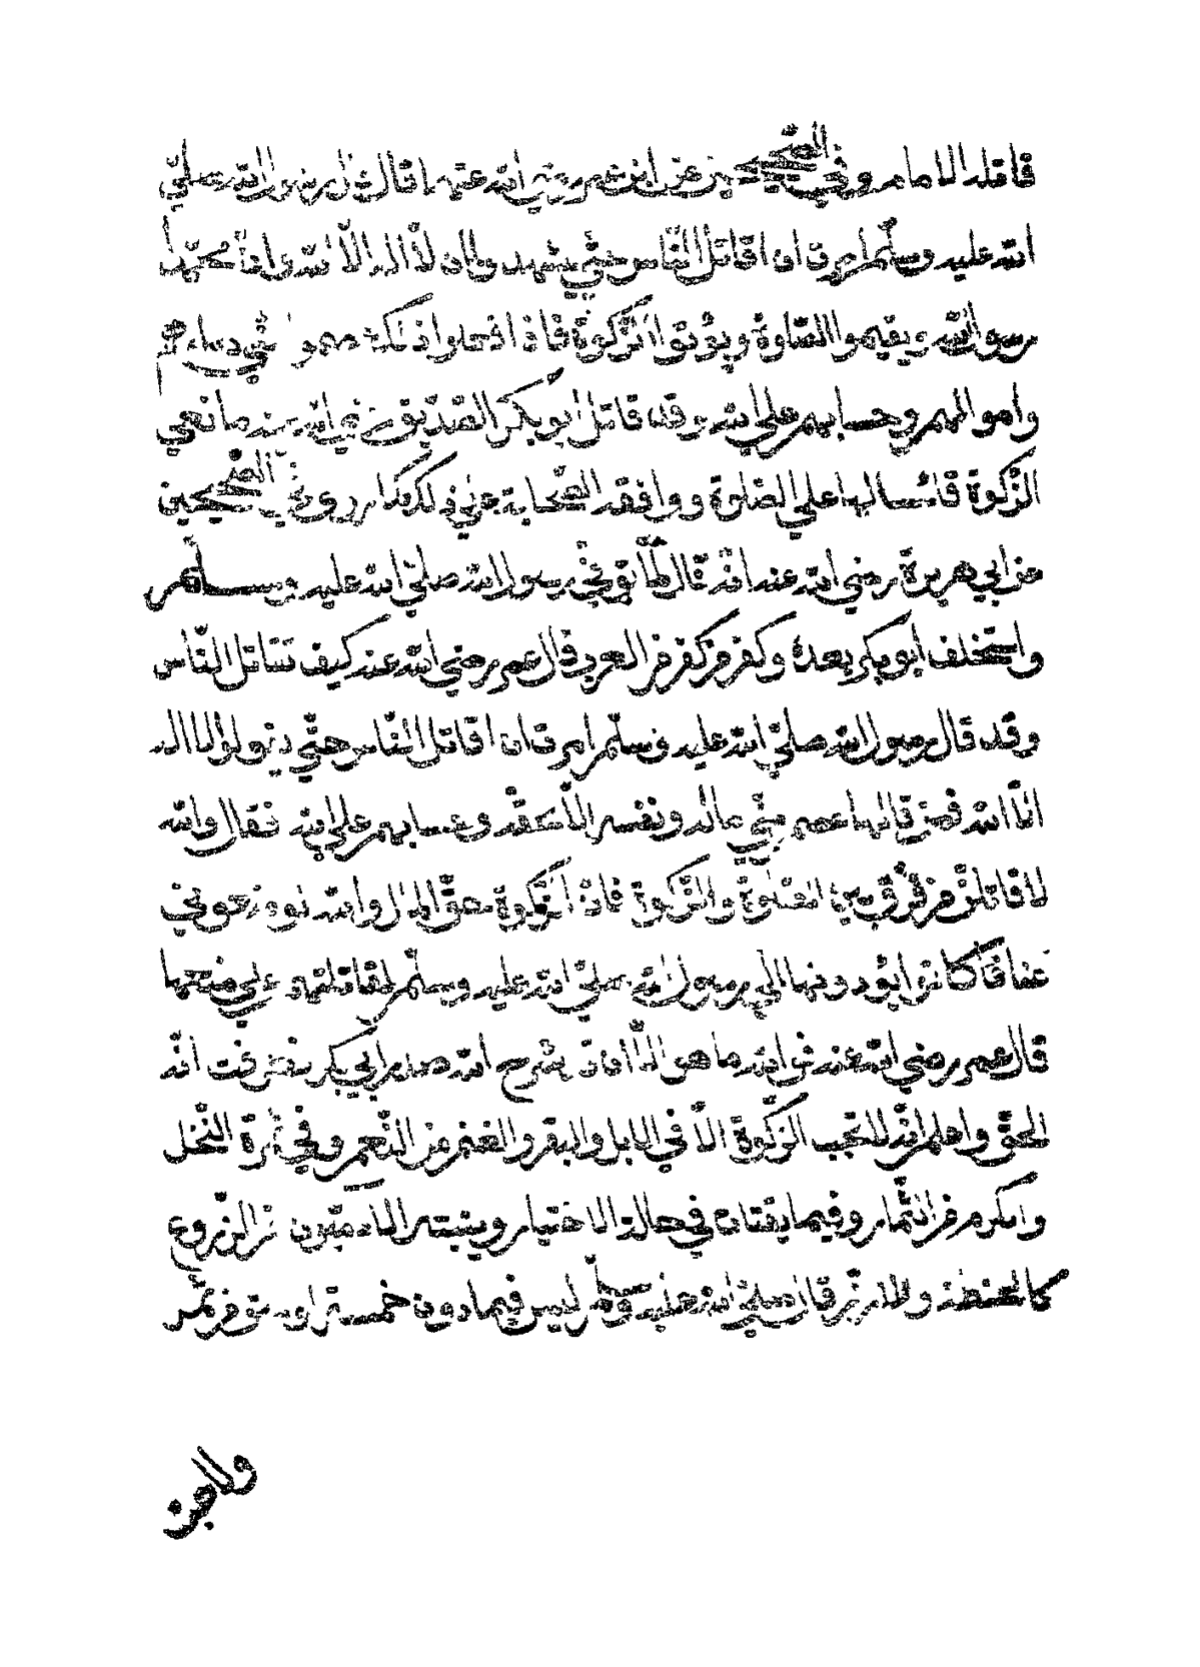 قاتله الامام وفي الصحيحين عن ابن عمر رضي الله عنهما قال قال رسول الله صلّي
الله عليه وسلّم امرت ان اقاتل النّاس حتّي يشهدوا ان لّا اله الّا الله وانّ محمّدا
رسول الله ويقيموا الصّلوة ويؤتوا الزّكوة فاذا فعلوا ذلك عصموا منّي دماءهم
واموالهم وحسابهم علي الله وقد قاتل ابو بكر الصّدّيق رضي الله عنه مانعي
الزّكوة قائسا لها علي الصّلوة ووافقه الصّحابة علي ذلك كما روي في الصّحيحين
عن ابي هريرة رضي الله عنه انّه قال لمّا توفّي رسول الله صلّي الله عليه وسلّم
واستخلف ابو بكر بعده وكفر من كفر من العرب قال عمر رضي الله عنه كيف تقاتل النّاس
وقد قال رسول الله صلّي الله عليه وسلّم امرت ان اقاتل النّاس حتّي يقولوا لا اله
الّا الله فمن قالها عصم منّي ماله ونفسه الّا بحقّه وحسابهم علي الله فقال والله
لاقاتلنّ من فرّق بين الصّلوة والزّكوة فانّ الزّكوة حقّ المال والله لو منعوني
عناقا كانوا يؤدونها الي رسول الله صلّي الله عليه وسلّم لقاتلتهم علي منعها
قال عمر رضي الله عنه فوالله ما هو الّا ان يشرح الله صدر ابي بكر فعرفت انّه
الحقّ واعلم انّه لا تجب الزّكوة الّا في الابل والبقر والغنم من النّعم وفي ثمرة النّخل
والكرم من الثّمار وفيما يقتات في حالة الاختيار وينبته الآدميّون من الزروع
كالحنطة والارزّ قال صلّي الله عليه وسلّم ليس فيما دون خمسة اوسق من تمر
ولا من